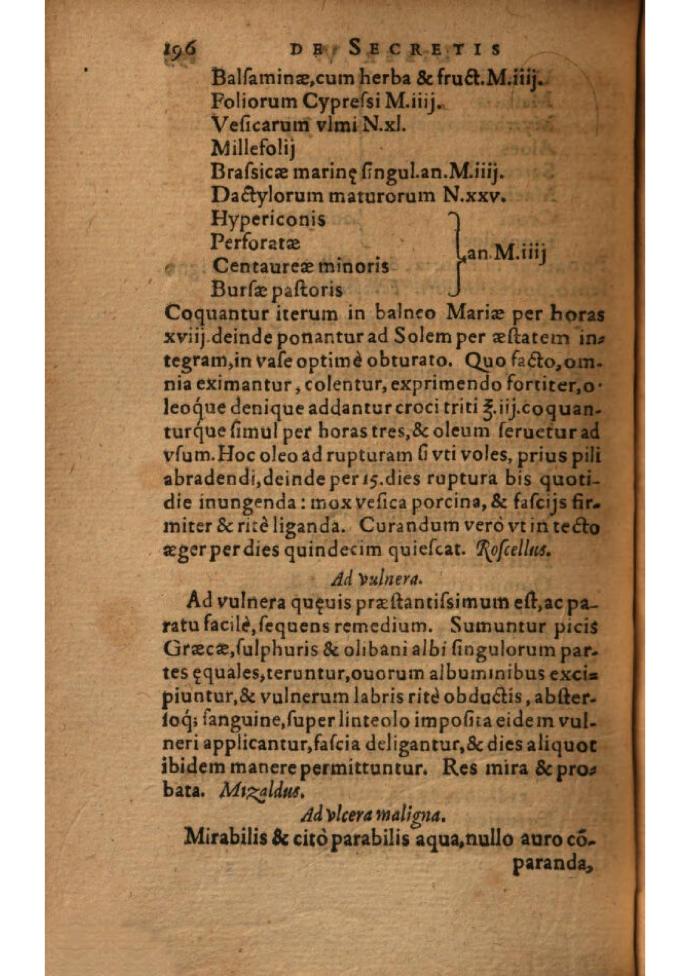 196 DE SECRETIS
Balſaminæ,cum herba & fruct.M.iiij.
Foliorum Cypreſſi M.iiij.
Veſicarum vlmi N.xl.
Millefolij
Braſſicæ marinę ſingul.an.M.iiij.
Dactylorum maturorum N.xxv.
Hypericonis
Perforatæ
an.M.iiij
Centaureæ minoris
Burſæ paſtoris
Coquantur iterum in balneo Mariæ per horas
xviij.deinde ponantur ad Solem per æſtatem in-
tegram,in vaſe optimè obturato. Quo facto,om-
nia eximantur, colentur, exprimendo fortiter,o-
leoq́ue denique addantur croci triti ʒ.iij.coquan-
turq́ue ſimul per horas tres,& oleum ſeruetur ad
vſum. Hoc oleo ad rupturam ſi vti voles, prius pili
abradendi,deinde per 15.dies ruptura bis quoti-
die inungenda: mox veſica porcina, & faſcijs fir-
miter & ritè liganda. Curandum verò vt in tecto
æger per dies quindecim quieſcat. Roſcellus.
Ad vulnera.
Ad vulnera quęuis præſtantiſſimum eſt,ac pa-
ratu facilè,ſequens remedium. Sumuntur picis
Græcæ,ſulphuris & olibani albi ſingulorum par-
tes ęquales,teruntur,ouorum albuminibus exci-
piuntur,& vulnerum labris ritè obductis, abſter-
ſoq; ſanguine,ſuper linteolo impoſita eidem vul-
neri applicantur,faſcia deligantur,& dies aliquot
ibidem manere permittuntur. Res mira & pro-
bata. Mizaldus.
Ad vlcera maligna.
Mirabilis & citò parabilis aqua,nullo auro cō-
paranda,